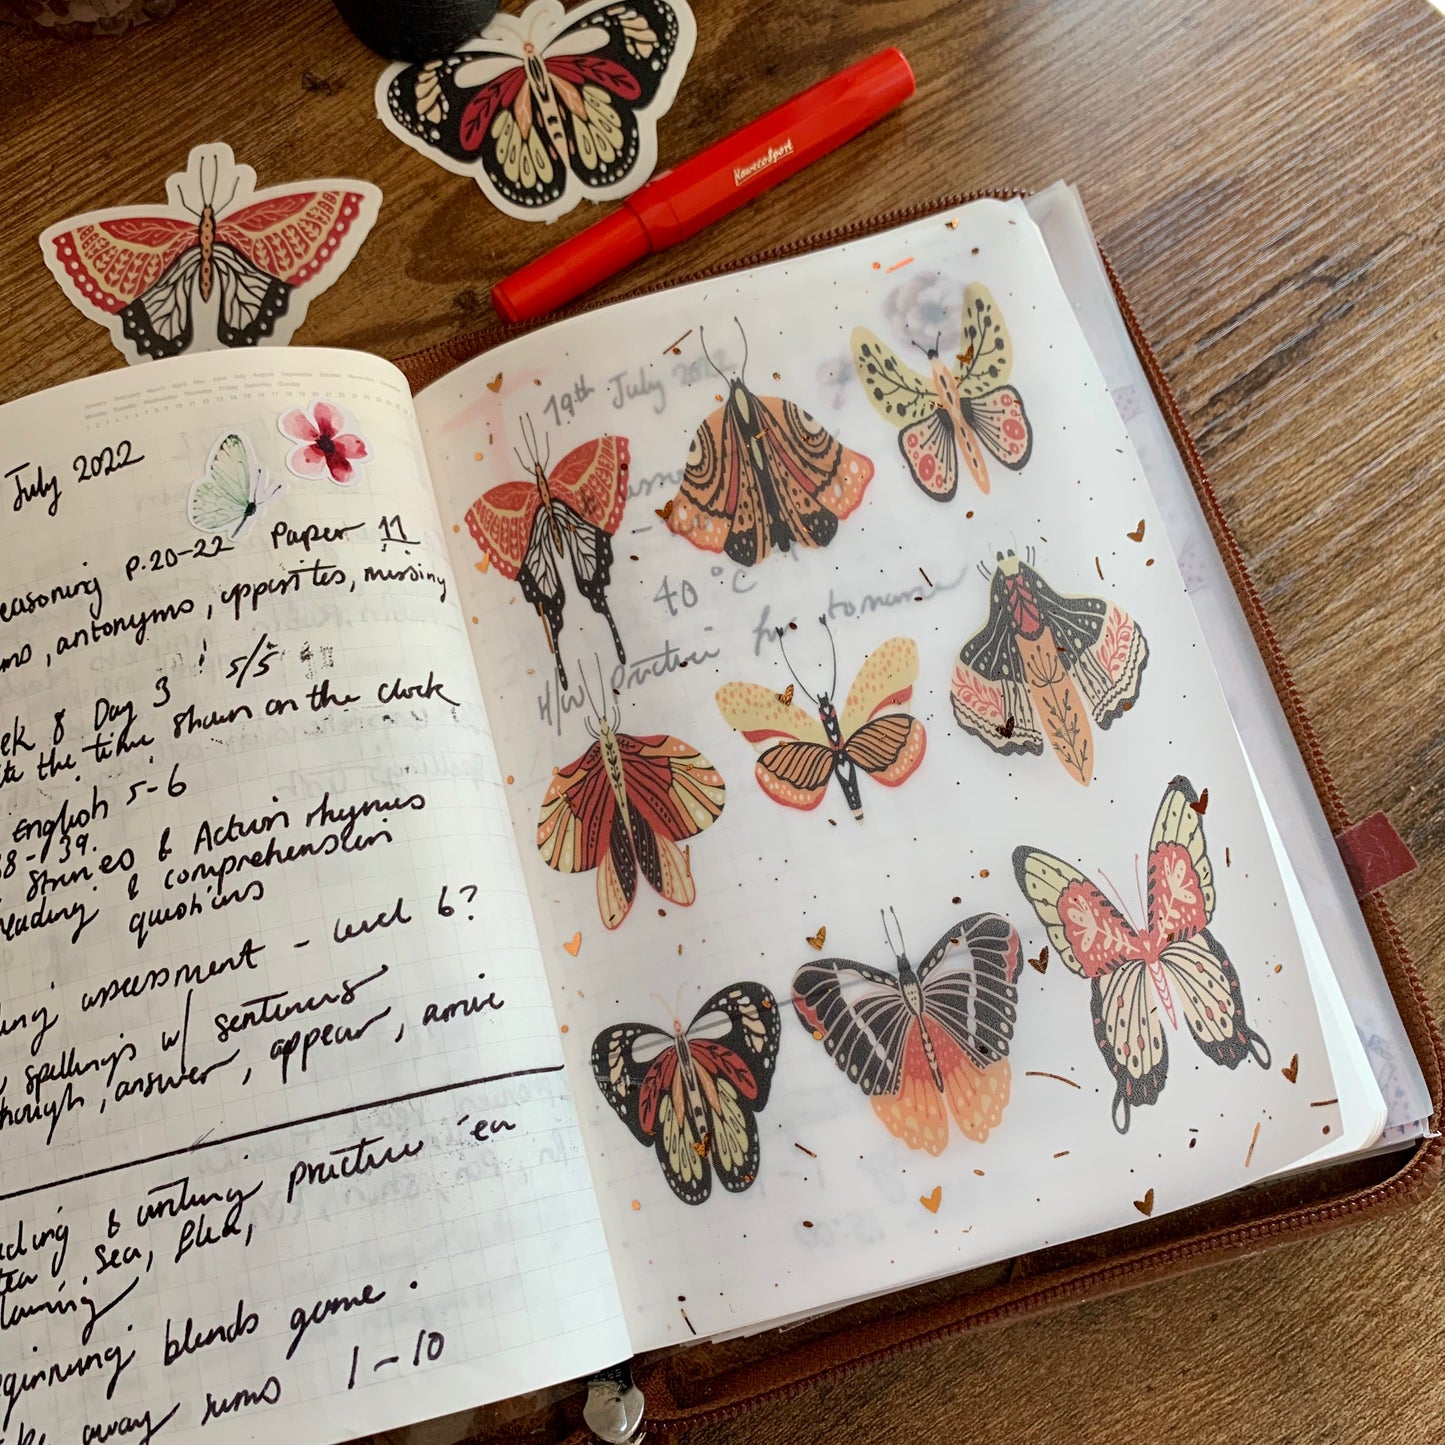 Kaweco Sport
January February March April May June July August September October November December
Monday Tuesday Wednesday Thursday Friday Saturday Sunday
July 2022
easoning P.20-22 Paper 11
ms, antonyms, opposites, missing
ek 8 Day 3 ! 5/5
the time shown on the clock
English 5-6
38-39.
Stories & Action rhymes
eading & comprehension
questions
assessment - level 6?
spellings w/ sentences
hough, answer, appear, arrive
& writing practice 'ea
tea sea, flea,
eginning blends game.
away sums 1-10
19th July 2022
40°C
H/W practice for tomorrow